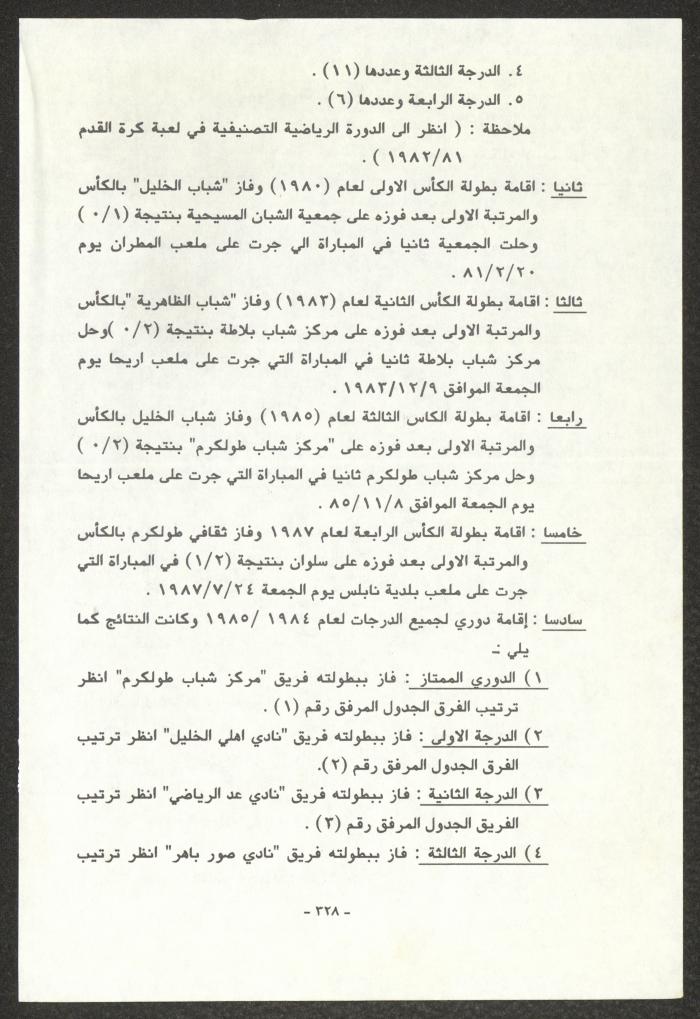 ٤. الدرجة الثالثة وعددها (١١) .
٥. الدرجة الرابعة وعددها (٦) .
ملاحظة : ( انظر الى الدورة الرياضية التصنيفية في لعبة كرة القدم
١٩٨٢/٨١ ) .
ثانيا : اقامة بطولة الكأس الاولى لعام (١٩٨٠) وفاز "شباب الخليل" بالكأس
والمرتبة الاولى بعد فوزه على جمعية الشبان المسيحية بنتيجة (٠/١ )
وحلت الجمعية ثانيا في المباراة الي جرت على ملعب المطران يوم
٨١/٢/٢٠ .
ثالثا : اقامة بطولة الكأس الثانية لعام (١٩٨٣) وفاز "شباب الظاهرية "بالكأس
والمرتبة الاولى بعد فوزه على مركز شباب بلاطة بنتيجة (٠/٢ )وحل
مركز شباب بلاطة ثانيا في المباراة التي جرت على ملعب اريحا يوم
الجمعة الموافق ١٩٨٣/١٢/٩ .
رابعا : اقامة بطولة الكاس الثالثة لعام (١٩٨٥) وفاز شباب الخليل بالكأس
والمرتبة الاولى بعد فوزه على "مركز شباب طولكرم" بنتيجة (٠/٢ )
وحل مركز شباب طولكرم ثانيا في المباراة التي جرت على ملعب اريحا
يوم الجمعة الموافق ٨٥/١١/٨ .
خامسا : اقامة بطولة الكأس الرابعة لعام ١٩٨٧ وفاز ثقافي طولكرم بالكأس
والمرتبة الاولى بعد فوزه على سلوان بنتيجة (١/٢) في المباراة التي
جرت على ملعب بلدية نابلس يوم الجمعة ١٩٨٧/٧/٢٤ .
سادسا : إقامة دوري لجميع الدرجات لعام ١٩٨٤ /١٩٨٥ وكانت النتائج كما
يلي :ـ
١) الدوري الممتاز : فاز ببطولته فريق "مركز شباب طولكرم" انظر
ترتيب الفرق الجدول المرفق رقم (١) .
٢) الدرجة الاولى : فاز ببطولته فريق "نادي اهلي الخليل" انظر ترتيب
الفرق الجدول المرفق رقم (٢).
٣) الدرجة الثانية : فاز ببطولته فريق "نادي عد الرياضي" انظر ترتيب
الفريق الجدول المرفق رقم (٣) .
٤) الدرجة الثالثة : فاز ببطولته فريق "نادي صور باهر" انظر ترتيب
- ٣٢٨ -